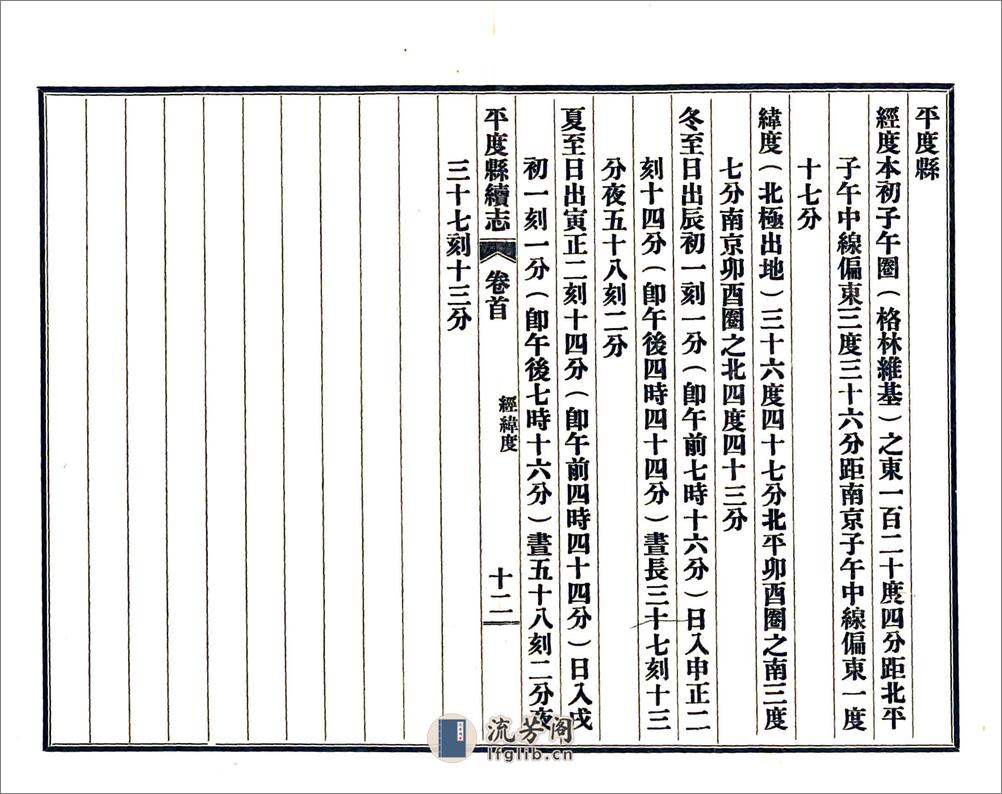 平度縣
經度本初子午圈（格林維基）之東一百二十度四分距北平
子午中線偏東三度三十六分距南京子午中線偏東一度
十七分
緯度（北極出地）三十六度四十七分北平卯酉圈之南三度
七分南京卯酉圈之北四度四十三分
冬至日出辰初一刻一分（卽午前七時十六分）日入申正二
刻十四分（卽午後四時四十四分）晝長三十七刻十三
分夜五十八刻二分
夏至日出寅正二刻十四分（卽午前四時四十四分）日入戌
初一刻一分（卽午後七時十六分）晝五十八刻二分夜
平度縣續志 卷首 經緯度 十二
三十七刻十三分
流芳阁
lfglib.cn